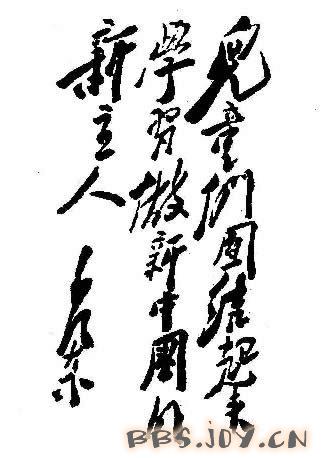 兒童們團結起來
學習做新中國的
新主人
毛澤東
BBS.JOY.CN